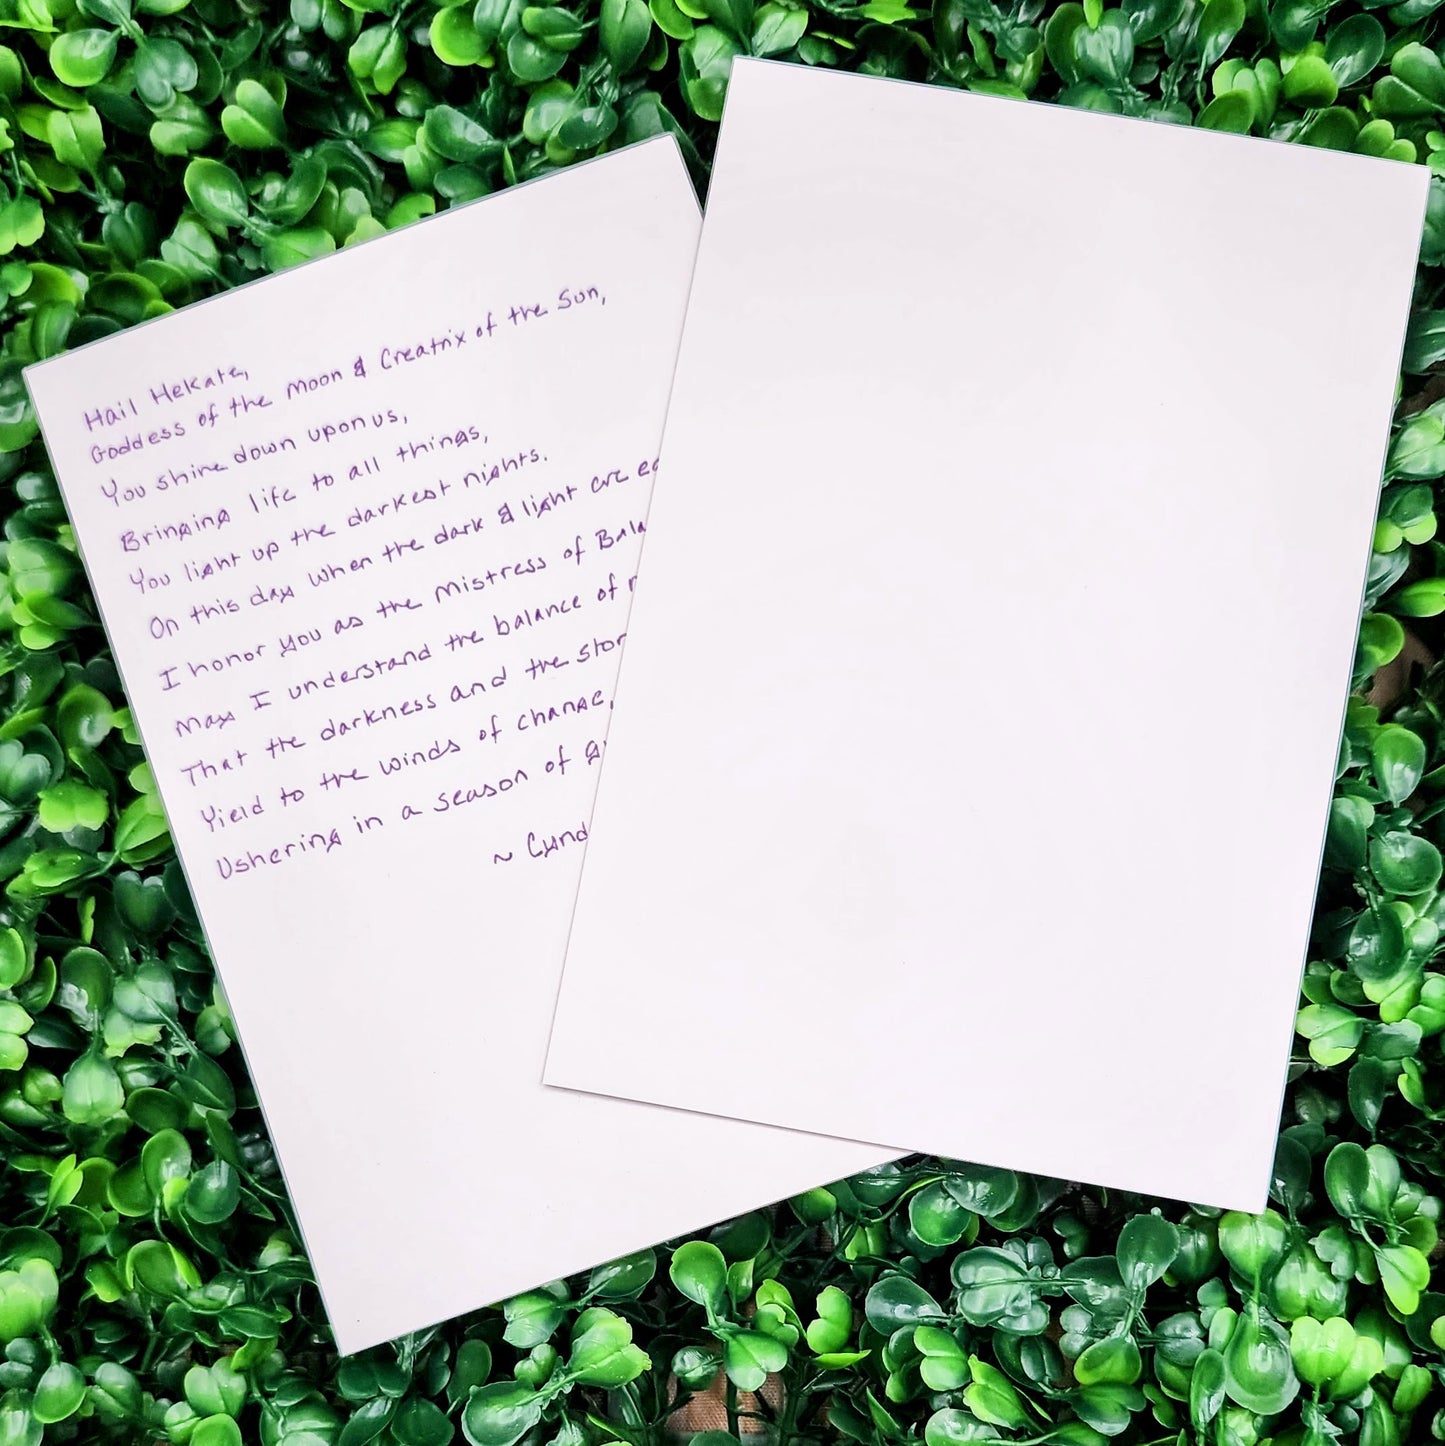 Hail Hekate,
Goddess of the Moon & Creatrix of the Sun,
You shine down upon us,
Bringing life to all things,
You light up the darkest nights.
On this day when the dark & light are
I honor you as the Mistress of
May I understand the balance of
That the darkness and the
Yield to the winds of change,
Ushering in a season of
~